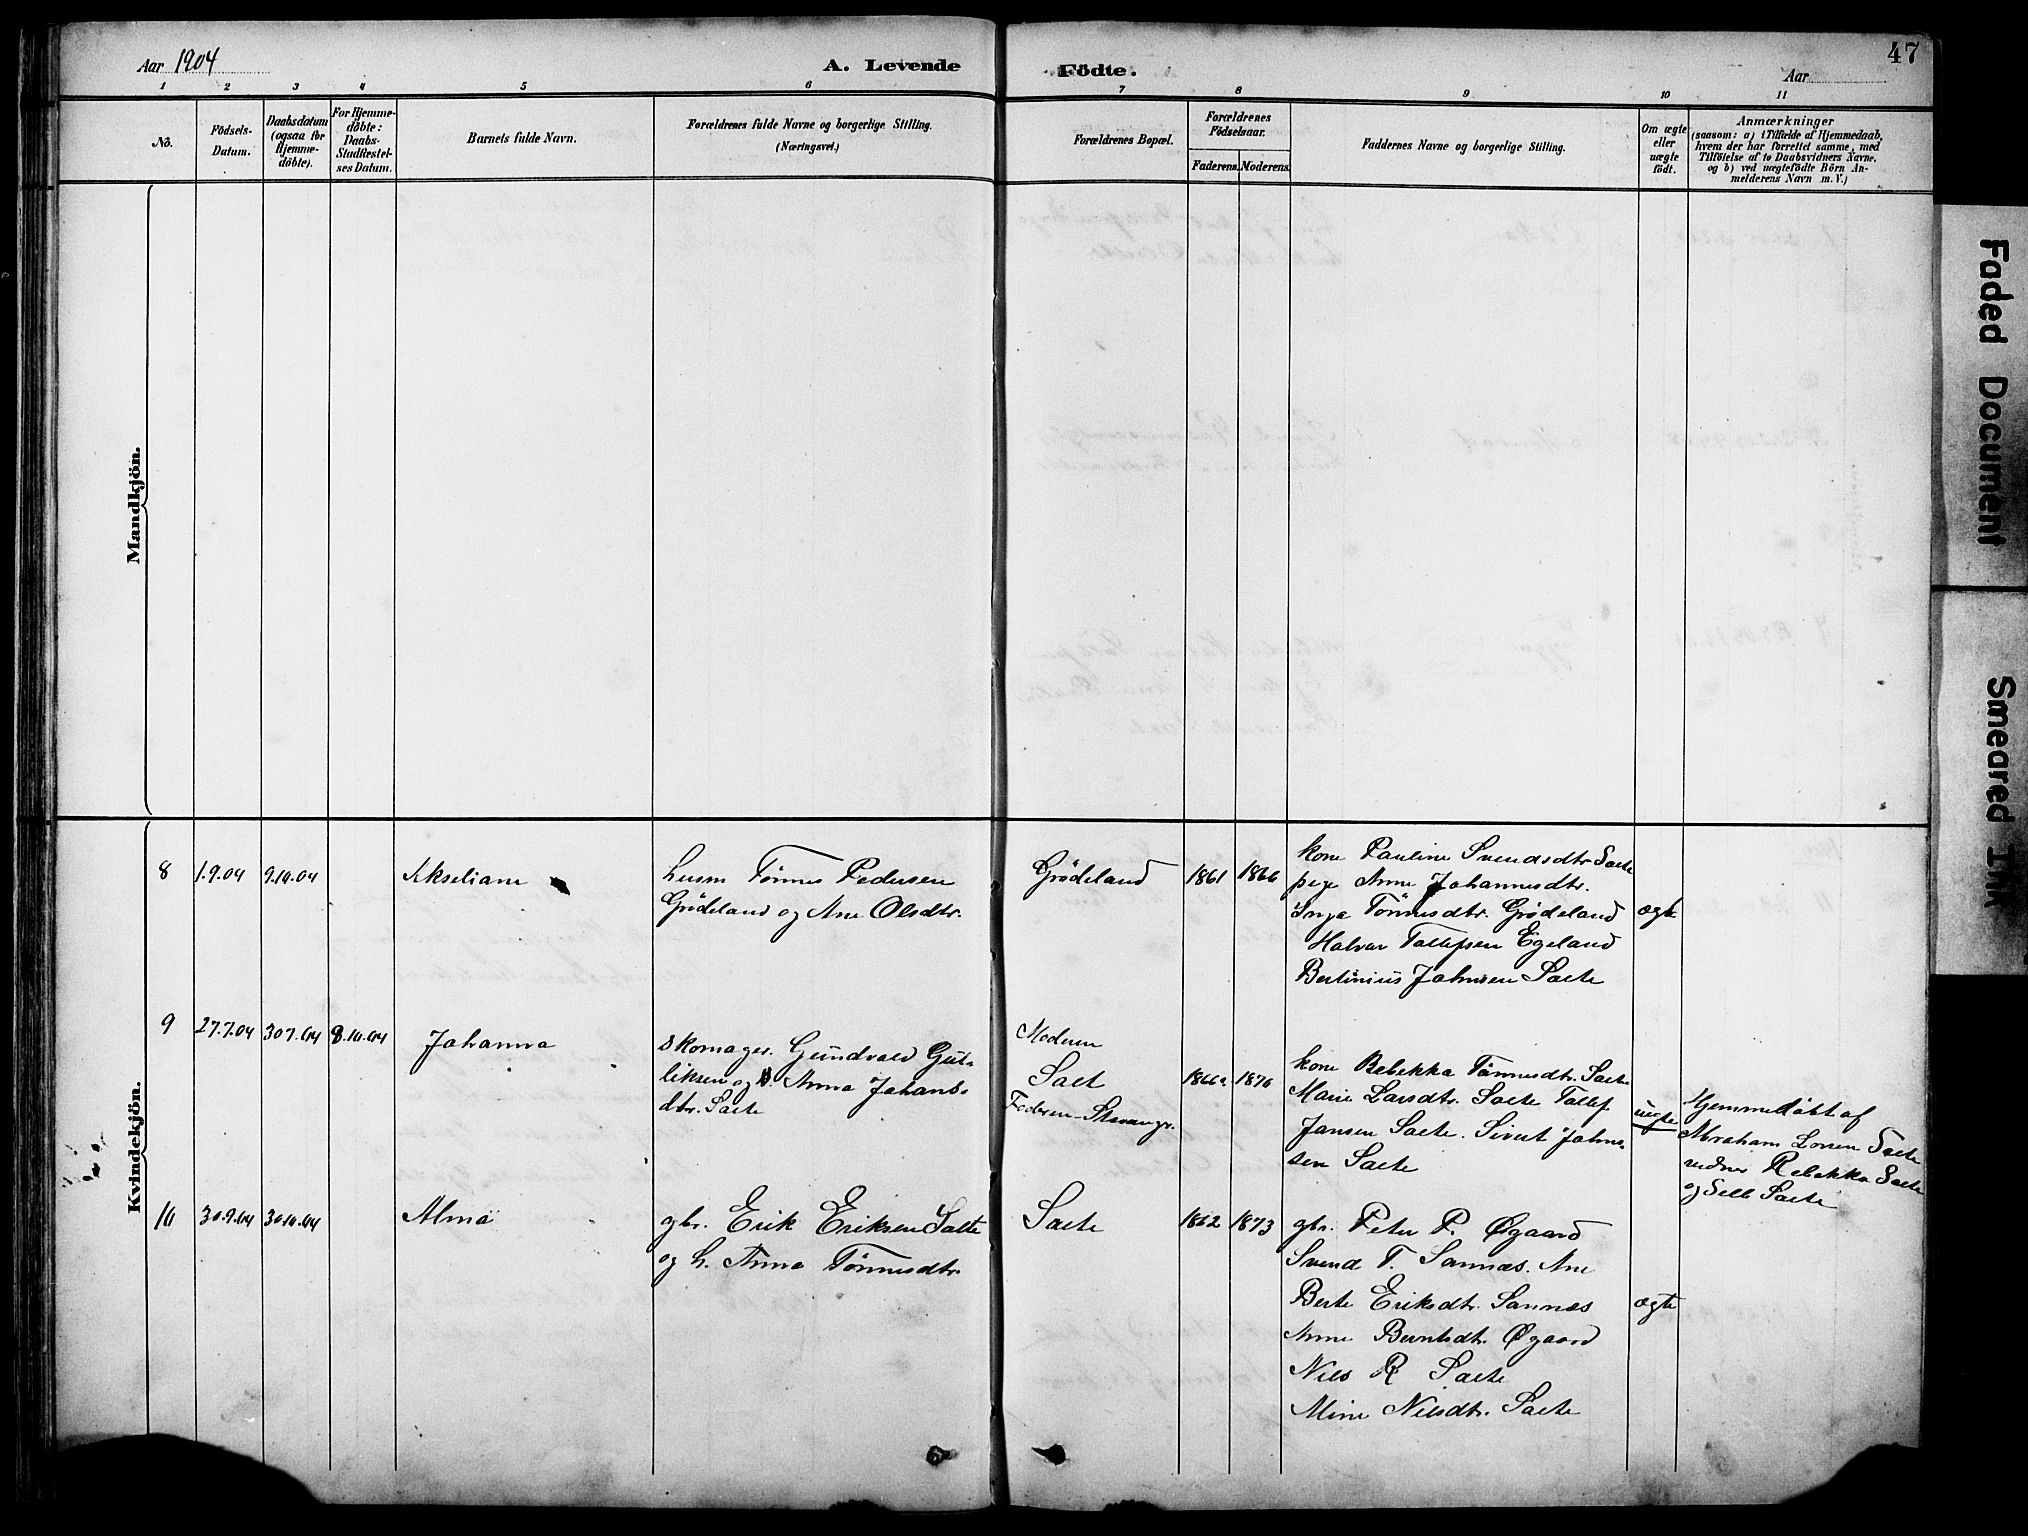 Aar 1904
A. Levende
Födte.
Aar
47
1 2 3 4 5 6 7 8 9 10 11
No.
Födsels-
Datum.
Daabsdatum
(ogsaa for
Hjemme-
döbte).
For Hjemme-
döbte:
Daabs-
Stadfæstel-
ses Datum.
Barnets fulde Navn.
Forældrenes fulde Navne og borgerlige Stilling.
(Næringsvei.)
Forældrenes Bopæl.
Forældrenes
Födselsaar.
Faderens.
Moderens.
Faddernes Navne og borgerlige Stilling.
Om ægte
eller
uægte
födt.
Anmærkninger
(saasom: a) i Tilfælde af Hjemmedaab,
hvem der har forrettet samme, med
Tilföielse af to Daabsvidners Navne.
og b) ved uægtefödte Börn An-
melderens Navn m. V.)
Mandkjön.
Kvindekjön.
8 1.9.04 9.10.04
Akseliane
husm Tönnes Pedersen
Grödeland og Ane Olsdtr.
Grödeland
1861 1866
kone Pauline Svendsdtr Salte
pige Anne Johannesdtr.
Inga Tönnesdtr. Grödeland
Halvar Tollefsen Egeland
Bertinius Johnsen Salte
ægte
9 27.7.04 30 7.04 8.10.04
Johanna
Skomager. Gundvald Gut-
liksen og Anna Johans-
dtr. Salte
Moderen
Salt
Faderen-Stavangr.
1866. 1870
kone Rebekka Tönnesdtr. Salte
Marie Larsdtr. Salte Tollef
Jansen Salte. Sivert Johns-
sen Salte
uægte
Hjemmedöbt af
Abraham Larsen Salte
vidner Rebekka Salte
og Salte
10 30.9.04 30 10.04
Alma
gbr. Erik Eriksen Salte
og h. Anna Tönnesdtr.
Salte
1862 1873
gbr. Peter P. Øgaard
Svend T. Sannæs. Ane
Berte Eriksdtr. Sannæs
Anne Berntsdtr. Øgaard
Nils R Salte
Mine Nilsdtr. Salte
ægte
Faded Document
Smeared Ink